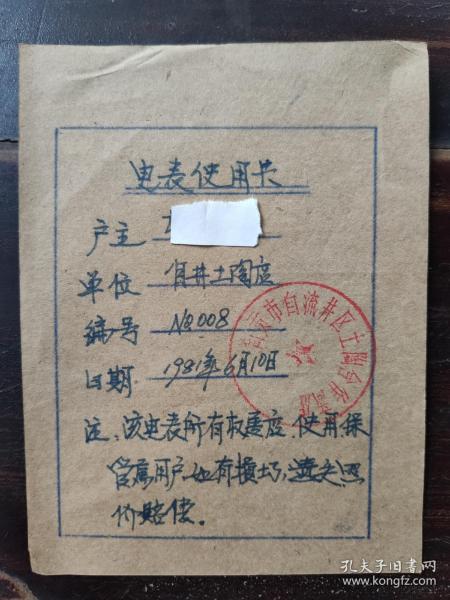 电表使用卡
户主
单位 自井土陶店
编号 NO.008
日期 1981年6月10日
自贡市自流井区土陶合作商店
注、该电表所有权属店、使用保
管属用户如有损坏,遗失照
价赔偿。
孔夫子旧书网
www.kongfz.com